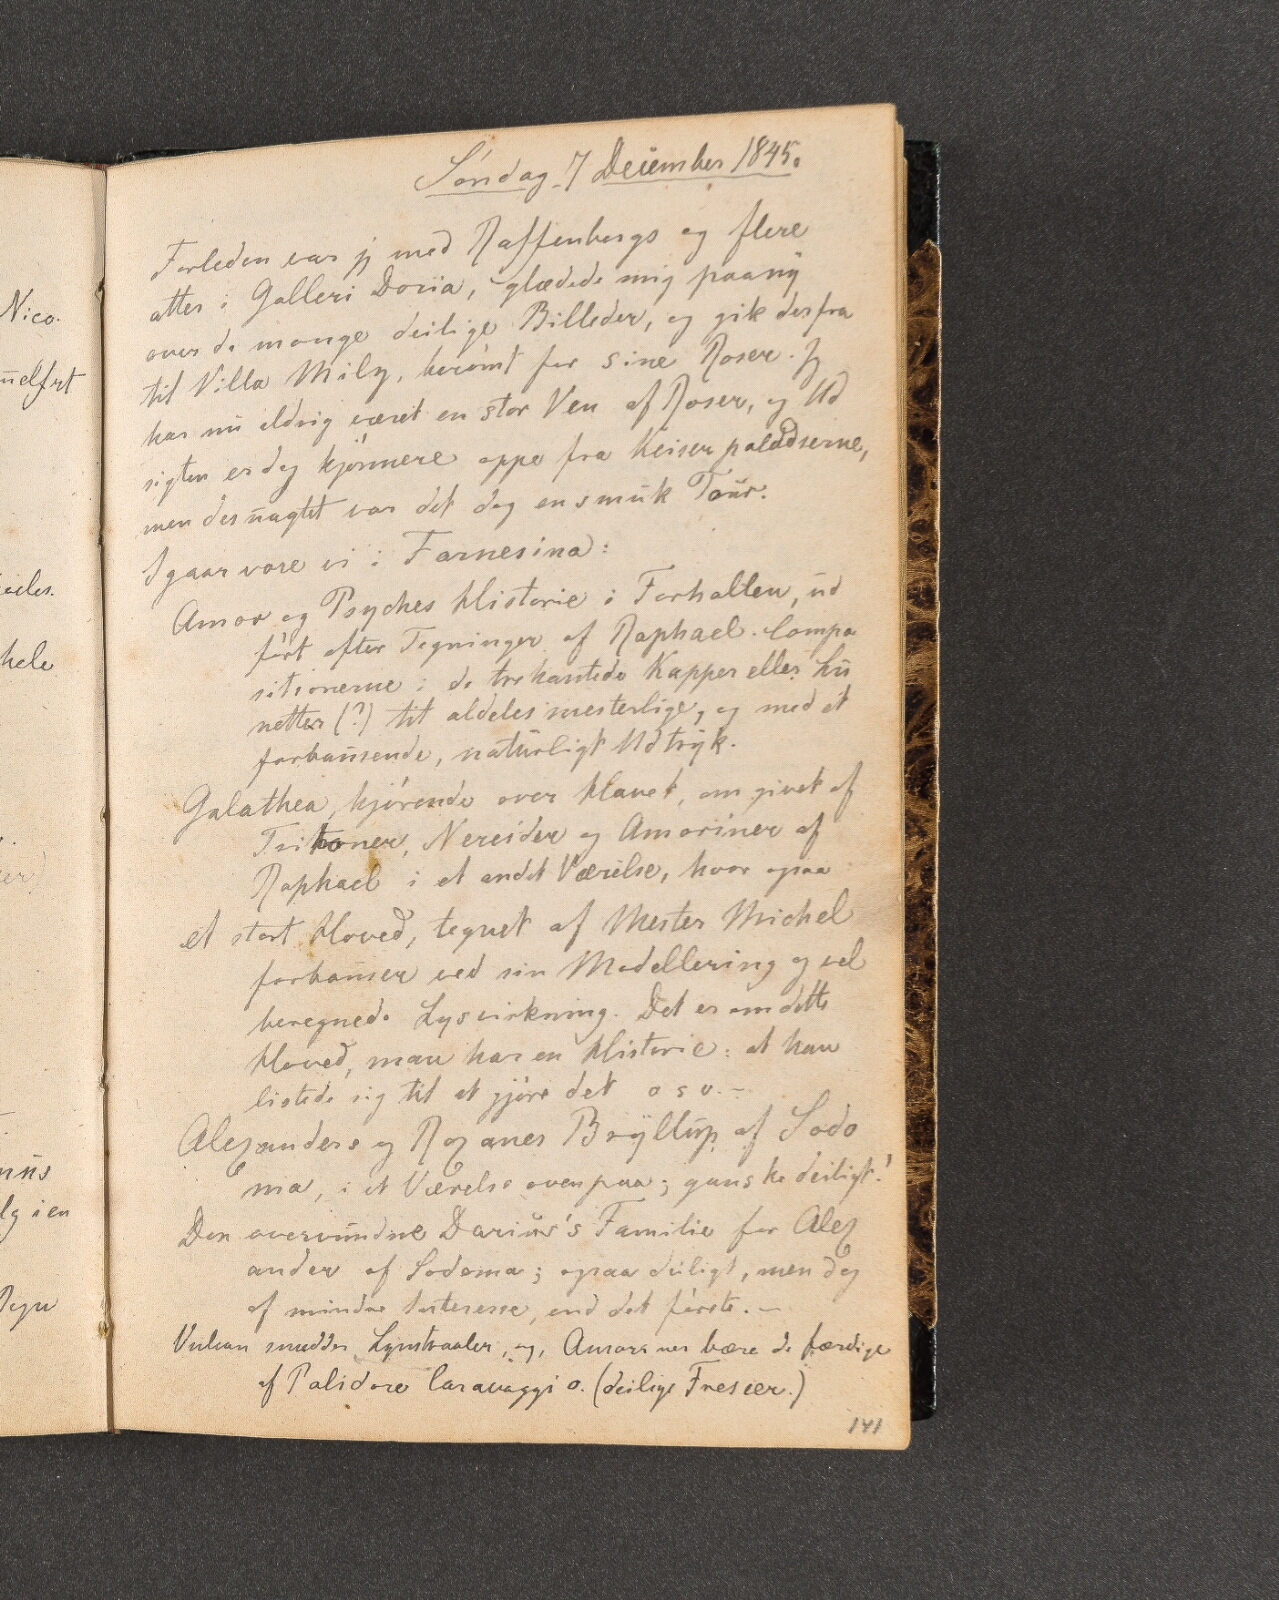 Søndag 7 December 1845.
Forleden var jg med Raffenbergs og flere
atter i Galleri Doria, glædede mig paany
over de mange deilige Billeder, og gik derfra
til Villa Mily, berømt for sine Roser. Jg
har nu aldrig været en stor Ven af Roser, og Ud
sigten er dog kjønnere oppe fra Keiserpaladserne,
men desuagtet var det dog en smuk Tour.
Igaar vare vi i Farnesina:
Amor og Psyches Historie i Forhallen, ud
ført efter Tegninger af Raphael. Compo
sitionerne i de trekantede Kapper eller Lu
netter (?) til aldeles mesterlige, og med et
forbausende, naturligt Udtryk.
Galathea, kjørende over Havet, omgivet af
Tritoner, Nereider og Amoriner af
Raphael i et andet Værelse, hvor ogsaa
et stort Hoved, tegnet af Mester Michel
forbauser ved sin Modellering og vel
beregnede Lysvirkning. Det er om dette
Hoved, man har en Historie: at han
listede sig til at gjøre det o s v. –
Alexanders og Roxanes Bryllup af Sodo
ma, i et Værelse ovenpaa; ganske deiligt!
Den overvundne Darius's Familie for Alex
ander af Sodoma; ogsaa deiligt, men dog
af mindre Interesse, end det første. –
Vulcan smedder Lynstraaler, og, Amoriner bære de færdige
af Polidoro Caravaggio. (deilige Frescer.)
141
Nico.
hele
lg i en